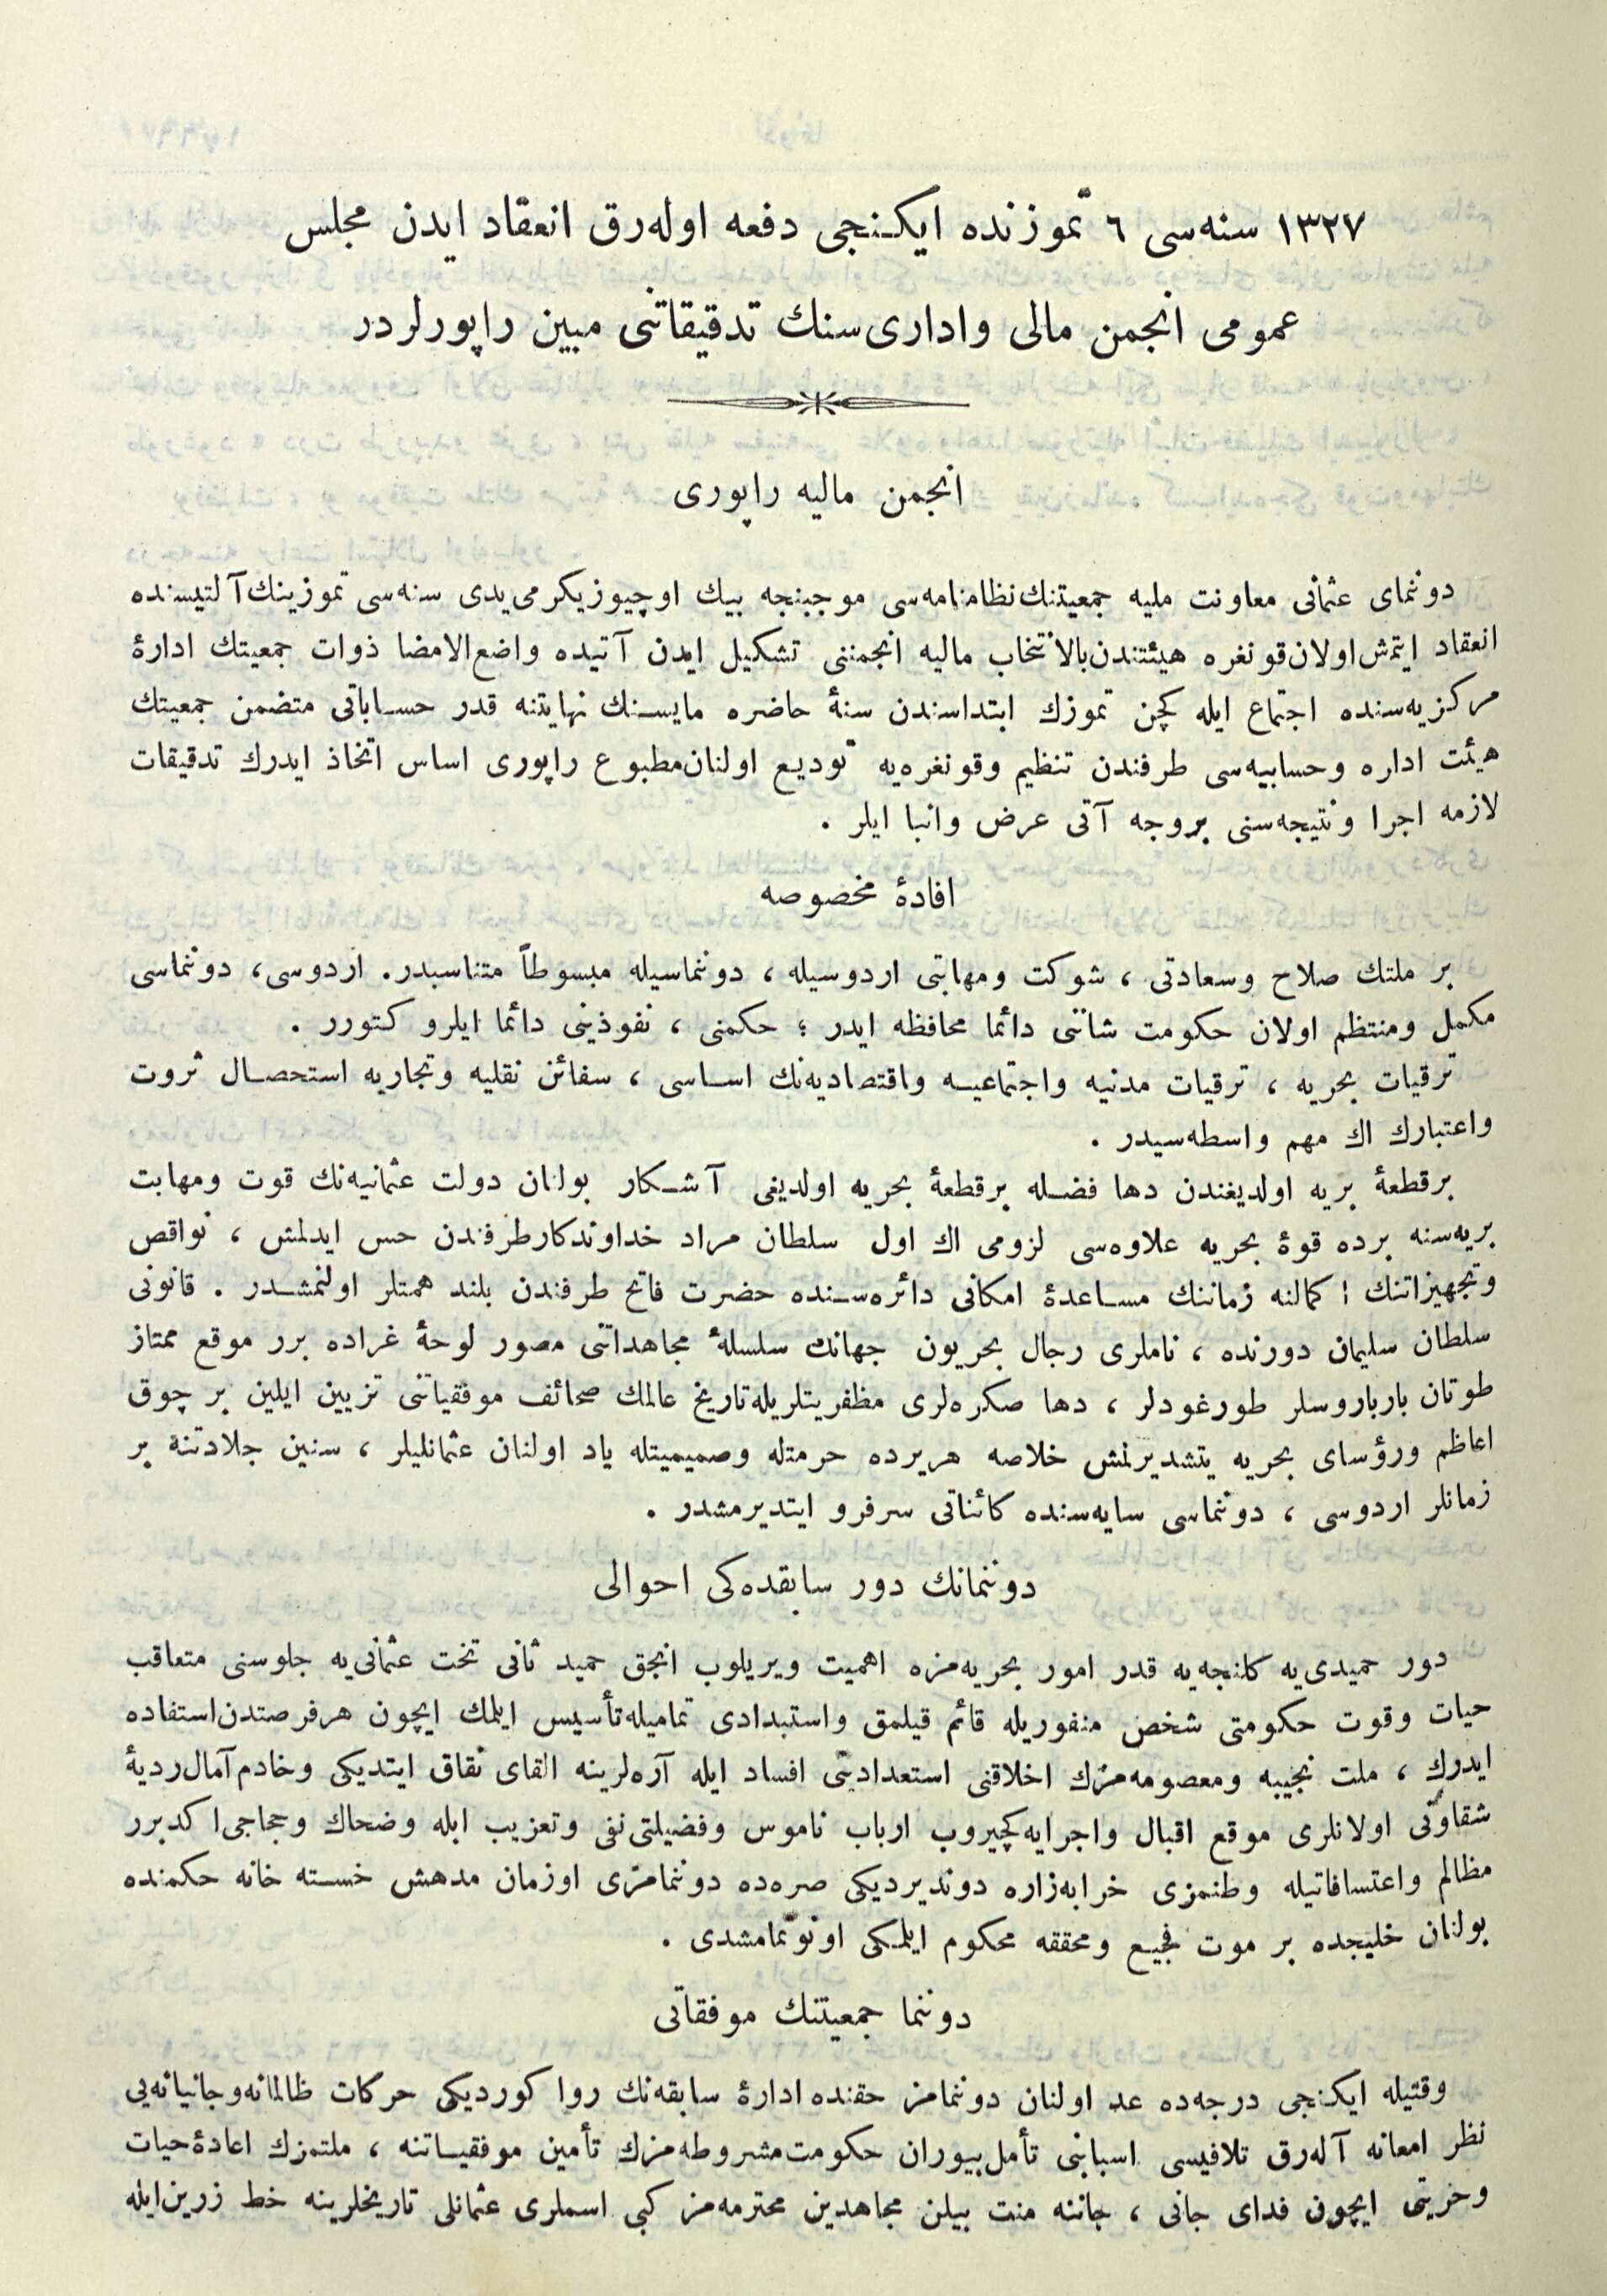 ١٣٢٧ سنه‌سی ٦ تموزنده ایكنجی دفعه اوله‌رق انعقاد ایدن مجلس
عمومی انجمن مالی واداری‌سنك تدقیقاتنی مبین راپورلردر
انجمن مالیه راپوری
دوننمای عثمانی معاونت ملیه جمعیتنك نظامنامه‌سی موجبنجه بیك اوچیوزیكرمی‌یدی سنه‌سی تموزینك آلتیسنده
انعقاد ایتمش اولان قونغره هیئتندن بالانتخاب مالیه انجمننی تشكیل ایدن آتیده واضع‌الامضا ذوات جمعیتك ادارۀ
مركزیه‌سنده اجتماع ایله كچن تموزك ابتداسندن سنۀ حاضره مایسنك نهایتنه قدر حساباتی متضمن جمعیتك
هیئت اداره وحسابیه‌سی طرفندن تنظیم وقونغره‌یه تودیع اولنان مطبوع راپوری اساس اتخاذ ایدرك تدقیقات
لازمه اجرا ونتیجه‌سنی بروجه آتی عرض وانبا ایلر .
افادۀ مخصوصه
بر ملتك صلاح وسعادتی ، شوكت ومهابتی اردوسیله ، دوننماسیله مبسوطاً متناسبدر. اردوسی، دوننماسی
مكمل ومنتظم اولان حكومت شاننی دائما محافظه ایدر ؛ حكمنی ، نفوذینی دائما ایلرو كتورر .
ترقیات بحریه ، ترقیات مدنیه واجتماعیه واقتصادیه‌نك اساسی ، سفائن نقلیه وتجاریه استحصال ثروت
واعتبارك اك مهم واسطه‌سیدر .
برقطعۀ بریه اولدیغندن دها فضله برقطعۀ بحریه اولدیغی آشكار بولنان دولت عثمانیه‌نك قوت ومهابت
بریه‌سنه برده قوۀ بحریه علاوه‌سی لزومی اك اول سلطان مراد خداوندكار طرفندن حس ایدلمش ، نواقص
وتجهیزاتنك اكمالنه زماننك مساعدۀ امكانی دائره‌سنده حضرت فاتح طرفندن بلند همتلر اولنمشدر . قانونی
سلطان سلیمان دورنده ، ناملری رجال بحریون جهانك سلسلۀ مجاهداتنی مصور لوحۀ غراده برر موقع ممتاز
طوتان بارباروسلر طورغودلر ، دها صكره‌لری مظفریتلریله تاریخ عالمك صحائف موفقیاتنی تزیین ایلین بر چوق
اعاظم ورؤسای بحریه یتشدیرلمش خلاصه هریرده حرمتله وصمیمیتله یاد اولنان عثمانلیلر ، سنین جلادتنه بر
زمانلر اردوسی ، دوننماسی سایه‌سنده كائناتی سرفرو ایتدیرمشدر .
دوننمانك دور سابقده‌كی احوالی
دور حمیدی‌یه كلنجه‌یه قدر امور بحریه‌مزه اهمیت ویریلوب انجق حمید ثانی تخت عثمانی‌یه جلوسنی متعاقب
حیات وقوت حكومتی شخص منفوریله قائم قیلمق واستبدادی تمامیله تأسیس ایلمك ایچون هرفرصتدن استفاده
ایدرك ، ملت نجیبه ومعصومه‌مزك اخلاقنی استعدادینی افساد ایله آره‌لرینه القای نفاق ایتدیكی وخادم آمال ردیۀ
شقاوتی اولانلری موقع اقبال واجرایه كچیروب ارباب ناموس وفضیلتی نفی وتعزیب ایله وضحاك وحجاجی اكدیرر
مظالم واعتسافاتیله وطنمزی خرابه‌زاره دوندیردیكی صره‌ده دوننمامزی اوزمان مدهش خسته خانه حكمنده
بولنان خلیجده بر موت فجیع ومحققه محكوم ایلمكی اونوتمامشدی .
دوننما جمعیتنك موفقاتی
وقتیله ایكنجی درجه‌ده عد اولنان دوننمامز حقنده ادارۀ سابقه‌نك روا كوردیكی حركات ظالمانه‌وجانیانه‌یی
نظر امعانه آله‌رق تلافیسی اسبابنی تأمل بیوران حكومت مشروطه‌مزك تأمین موفقیاتنه ، ملتمزك اعادۀ حیات
وحریتی ایچون فدای جانی ، جاننه منت بیلن مجاهدین محترمه‌مز كبی اسملری عثمانلی تاریخلرینه خط زرین‌ایله